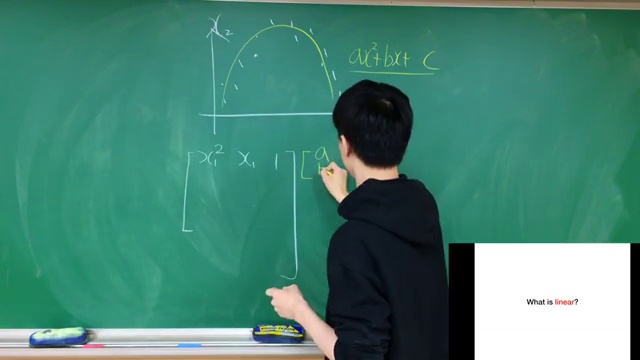 x₂
ax²+bx+ c
[ x₁² x₁ 1 ] [ a
b
What is linear?